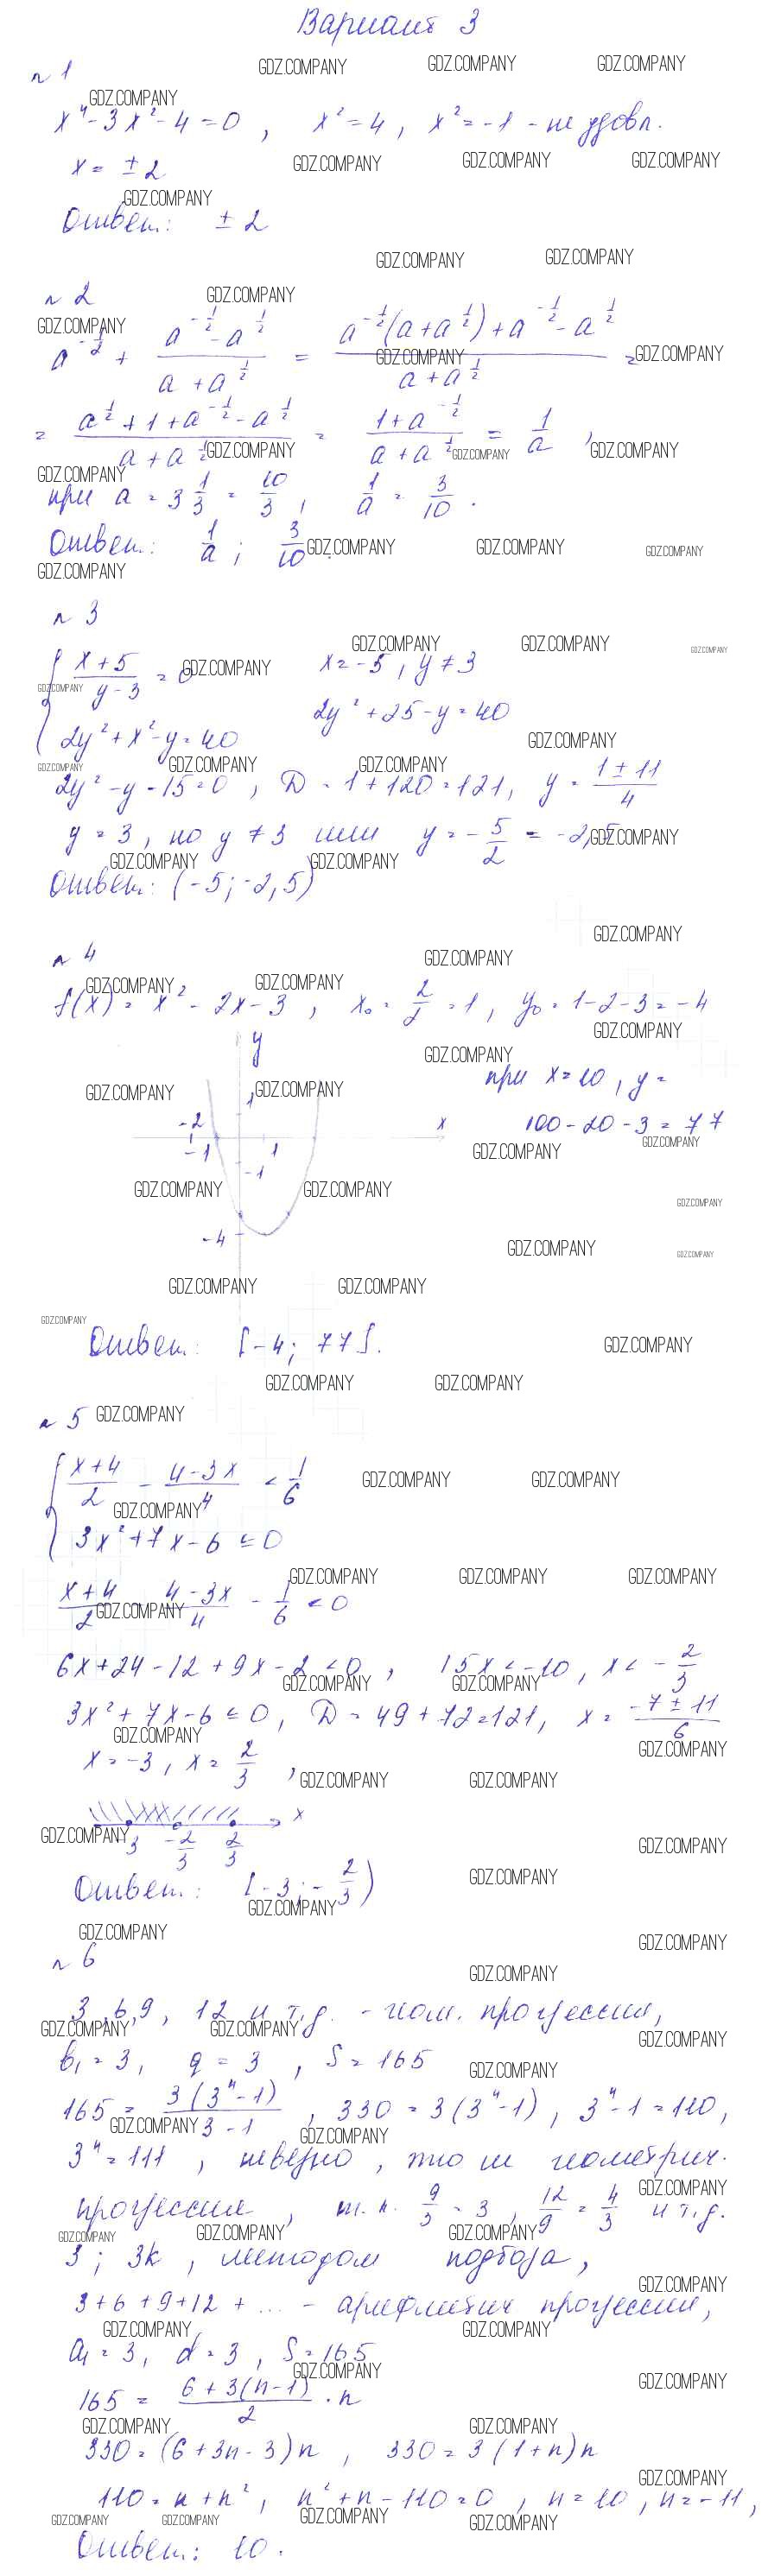 Вариант 3
№ 1
x⁴ - 3x² - 4 = 0, x² = 4, x² = -1 - не удовл.
x = ± 2
Ответ: ± 2
№ 2
a^(-1/2) + (a^(-1/2) - a^(1/2))/(a + a^(1/2)) = (a^(-1/2)(a + a^(1/2)) + a^(-1/2) - a^(1/2))/(a + a^(1/2)) =
= (a^(1/2) + 1 + a^(-1/2) - a^(1/2))/(a + a^(1/2)) = (1 + a^(-1/2))/(a + a^(1/2)) = 1/a,
при a = 3 1/3 = 10/3, 1/a = 3/10.
Ответ: 1/a; 3/10.
№ 3
{ (x + 5)/(y - 3) = 0 x = -5, y ≠ 3
2y² + x² - y = 40 2y² + 25 - y = 40
2y² - y - 15 = 0, D = 1 + 120 = 121, y = (1 ± 11)/4
y = 3, но y ≠ 3 или y = -5/2 = -2,5
Ответ: (-5; -2,5)
№ 4
f(x) = x² - 2x - 3, x₀ = 2/2 = 1, y₀ = 1 - 2 - 3 = -4
y
при x = 10, y =
1
-2
x
100 - 20 - 3 = 77
-1
1
-1
-4
Ответ: [-4; 77].
№ 5
{ (x + 4)/2 - (4 - 3x)/4 < 1/6
3x² + 7x - 6 ≤ 0
(x + 4)/2 - (4 - 3x)/4 - 1/6 < 0
6x + 24 - 12 + 9x - 2 < 0, 15x < -10, x < -2/3
3x² + 7x - 6 ≤ 0, D = 49 + 72 = 121, x = (-7 ± 11)/6
x = -3, x = 2/3,
x
3 -2/3 2/3
Ответ: [-3; -2/3)
№ 6
3, 6, 9, 12 и т.д. - геом. прогрессия,
b₁ = 3, q = 3, S = 165
165 = 3(3ⁿ - 1)/(3 - 1), 330 = 3(3ⁿ - 1), 3ⁿ - 1 = 110,
3ⁿ = 111, неверно, что геометрич.
прогрессия, т.к. 9/3 = 3, 12/9 = 4/3 и т.д.
3; 3k, методом подбора,
3 + 6 + 9 + 12 + ... - арифметич прогрессия,
a₁ = 3, d = 3, S = 165
165 = (6 + 3(n - 1))/2 · n
330 = (6 + 3n - 3)n, 330 = 3(1 + n)n
110 = n + n², n² + n - 110 = 0, n = 10, n = -11,
Ответ: 10.
GDZ.COMPANY